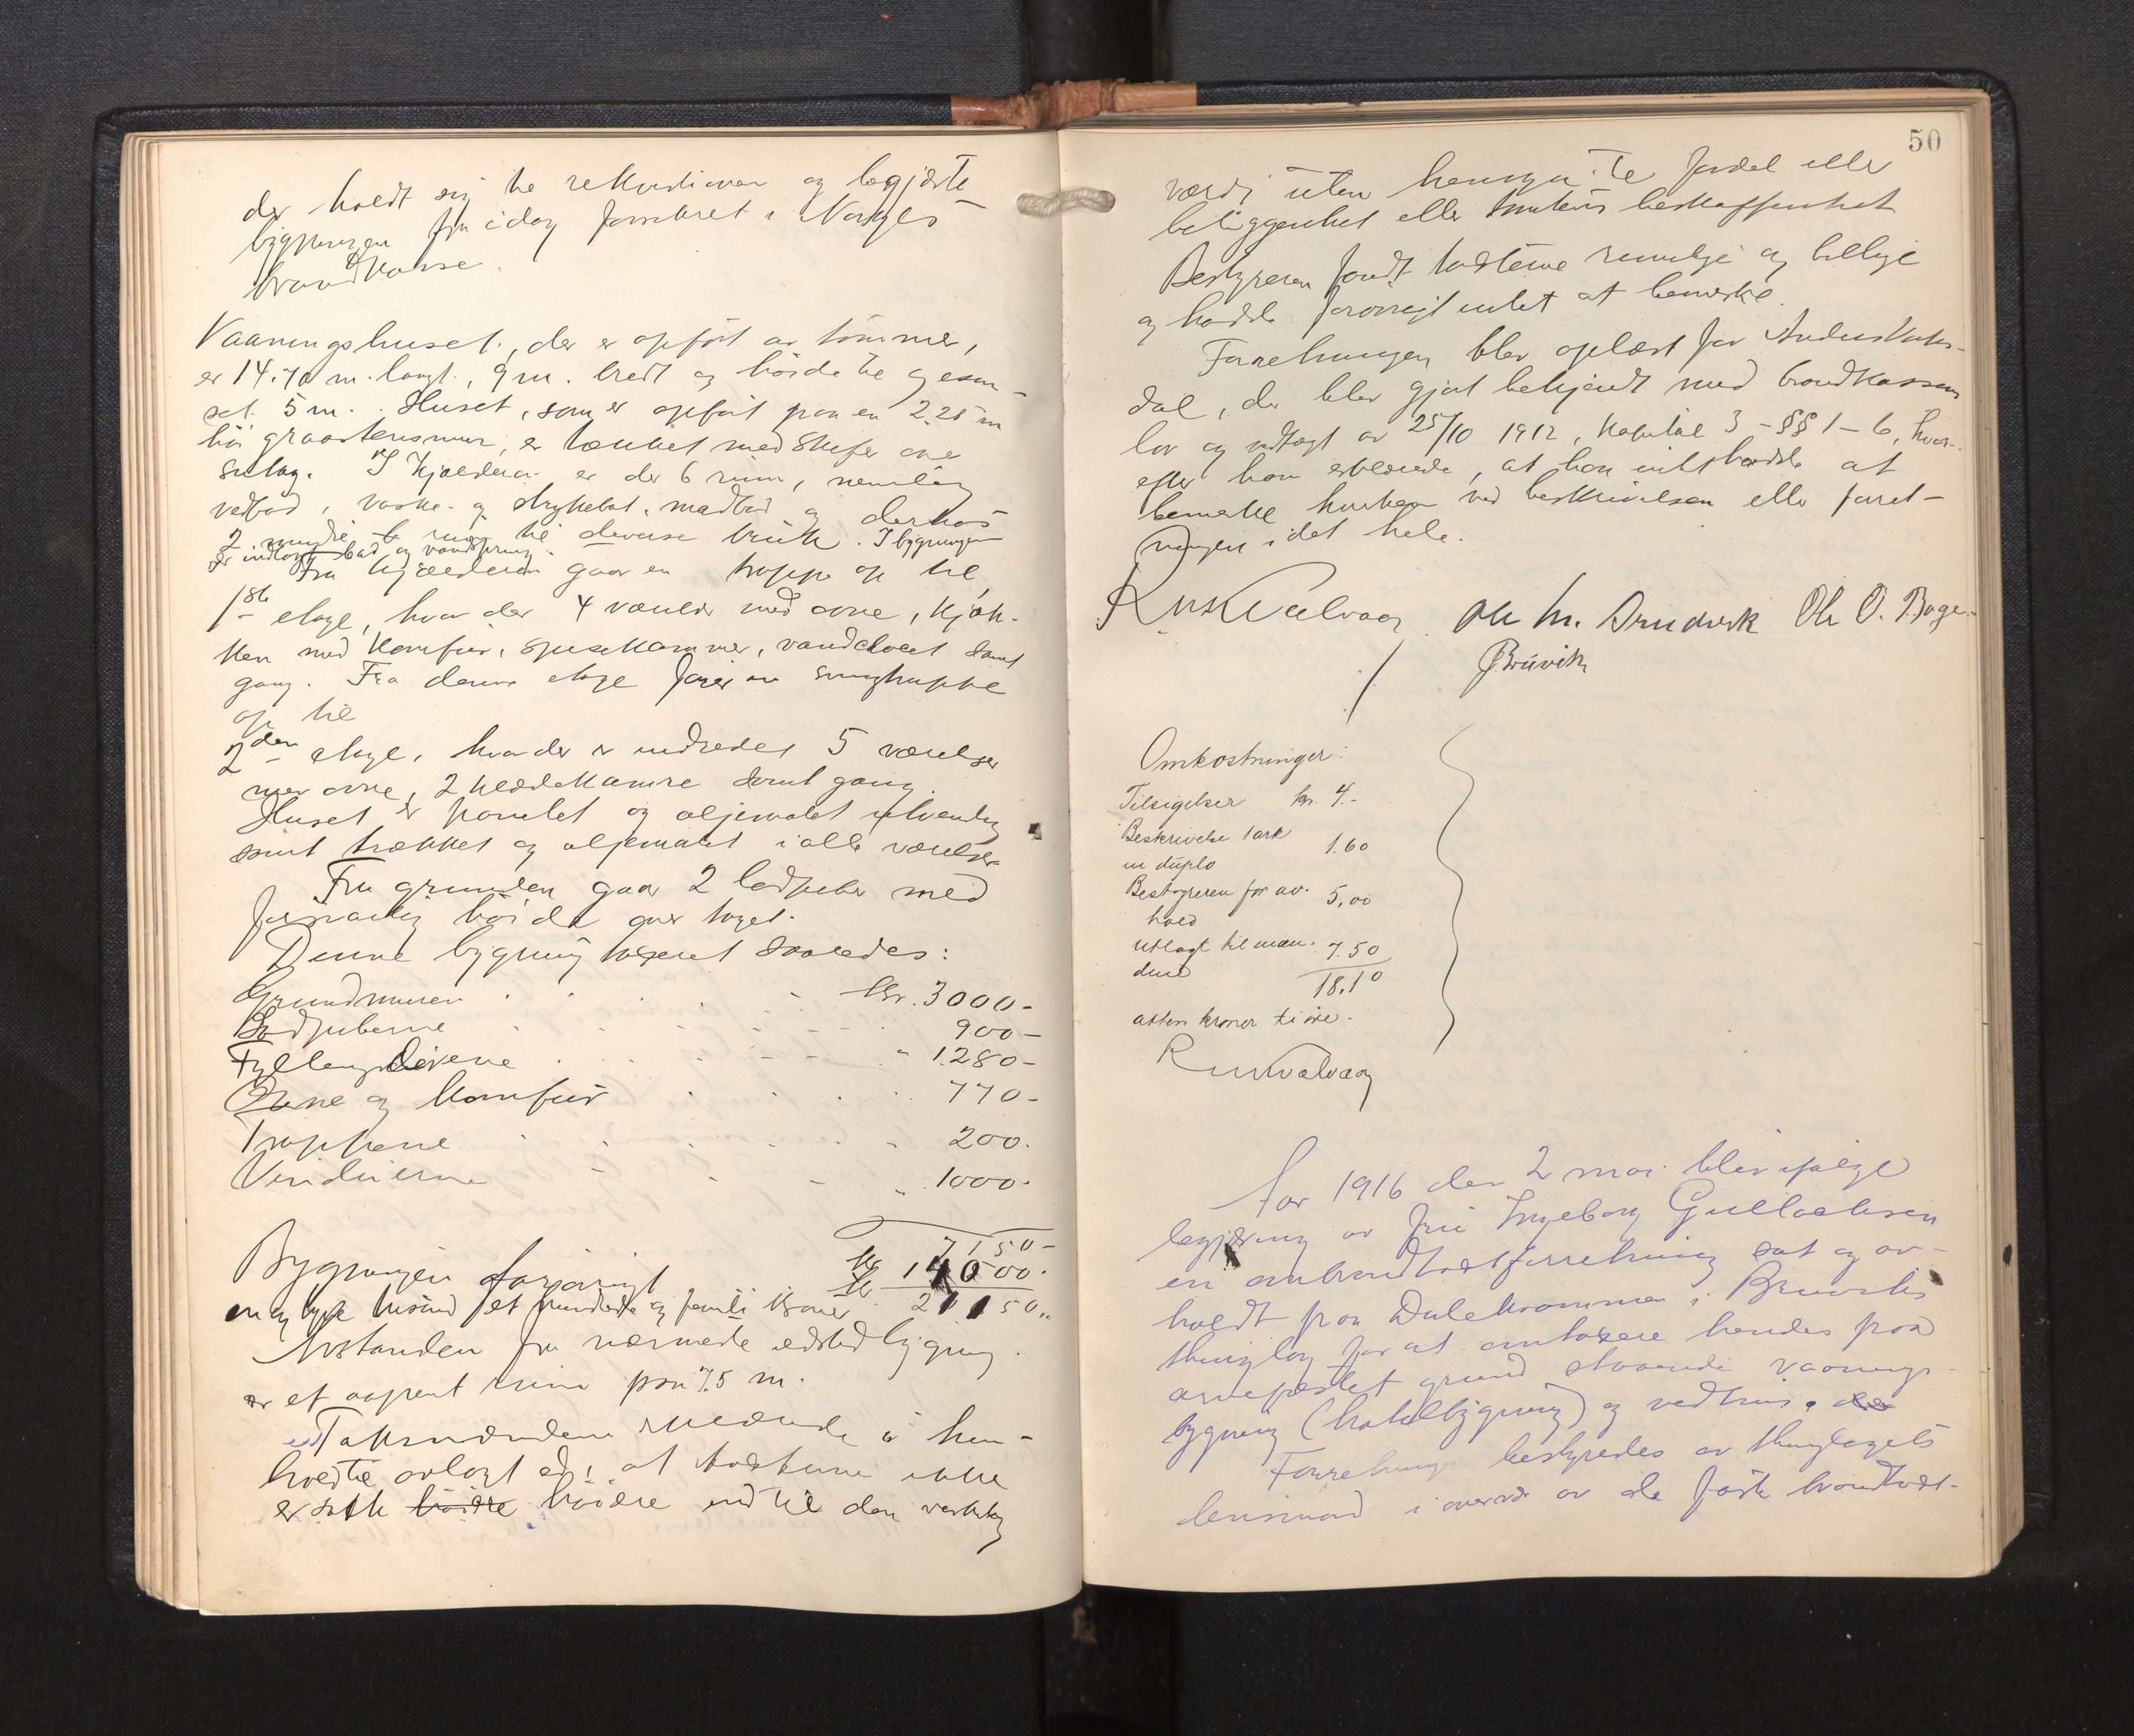 der holdt sig te rekvisitionen og begjærte
bygningen fra idag forsikret i Norges
brandkasse.
Vaaningshuset, der er opført av tømmer,
er 14.70 m. langt, 9 m. bredt og høide til gesim-
set 5 m. Huset, som er opført paa en 2.25 m
høi graastensmur, er tækket med skifer over
sutag. I kjælderen er der 6 rum, nemlig
vedbod, vaske- og strykebod, madbod og derhos
2 mindre rum til diverse bruk. I bygningen
er indlagt bad og vandspring.
Fra kjælderen gaar en trappe op til
1ste etage, hvor der 4 værelser med ovne, kjøk-
ken med komfur, spisekammer, vandcloset samt
gang. Fra denne etage fører en svingtrappe
op til
2den etage, hvor der er indredet 5 værelser
med ovne, 2 klædekamre samt gang.
Huset er panelet og oljemalet utvendig
samt trækket og oljemalet i alle værelser
Fra grunden gaar 2 ledpiber med
forsvarlig høide over taget.
Denne bygning taxeret saaledes:
Grundmuren kr. 3000-
Ledpiberne 900-
Fyllingsdørene " 1280-
Ovne og komfur 770-
Trapperne 200.
Vinduerne " 1000.
7150-
Bygningen forøvrigt kr 14000.
en og tyve tusind et hundrede og femti kroner kr 21150,,
Avstanden fra nærmeste ildstedbygning
er et aapent rum paa 7.5 m.
Taksmændene erklærede i hen-
hold til avlagt ed, at taksterne ikke
er satte høiere høiere end til den virkelig
50
værdi uten hensyn til fordel eller
beliggenhet eller tomtens beskaffenhet
Bestyreren fandt taksterne rimelige og billige
og hadde forøvrigt intet at bemerke.
Forretningen blev oplæst for Anders
dal, der blev gjort bekjendt med brandkassens
lov og vedtægt av 25/10 1912, kapitel 3 - §§ 1-6, hvor-
efter han erklærede, at han intet hadde at
bemerke hverken ved beskrivelsen eller forret-
ningen i det hele.
R Kvalvaag Ole M. Ole O. Boge
Bruvik
Omkostninger:
Tilsigelser kr. 4.-
Beskrivelse 1 ark
in duplo 1.60
Bestyreren for av-
hold 5,00
Utlagt til mæn-
dene 7.50
18.10
atten kroner ti øre.
R Kvalvaag
Aar 1916 den 2 mai blev ifølge
begjæring av fru Ingeborg Gullachsen
en ombrandtakstforretning sat og av-
holdt paa Dalekvammen i Bruviks
thinglag for at omtaxere hendes paa
arvefæstet grund staaende vaanings-
bygning (hotelbygning) og vedhus.
Forretningen bestyredes av thinglagets
lensmand i overvær av de faste brandtakst-